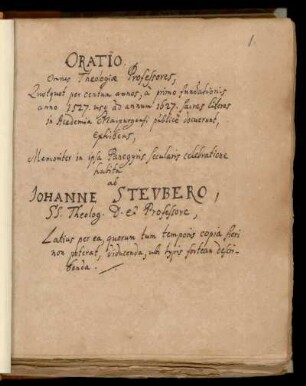 1.
ORATIO.
Omnes Theologiæ Professores,
Quotquot per centum annos, à primo fundationis
anno 1527. usq. ad annum 1627. sacras literas
in Academia Marpurgensi publicè docuerunt,
exhibens,
Memoriter in ipsa Panegyris secularis celebratione
habita
ab
IOHANNE STEVBERO,
SS. Theolog. D. et Professore,
Latius per ea, quorum tum temporis copia fieri
non poterat, diducenda, ubi typis fortean descri-
benda.